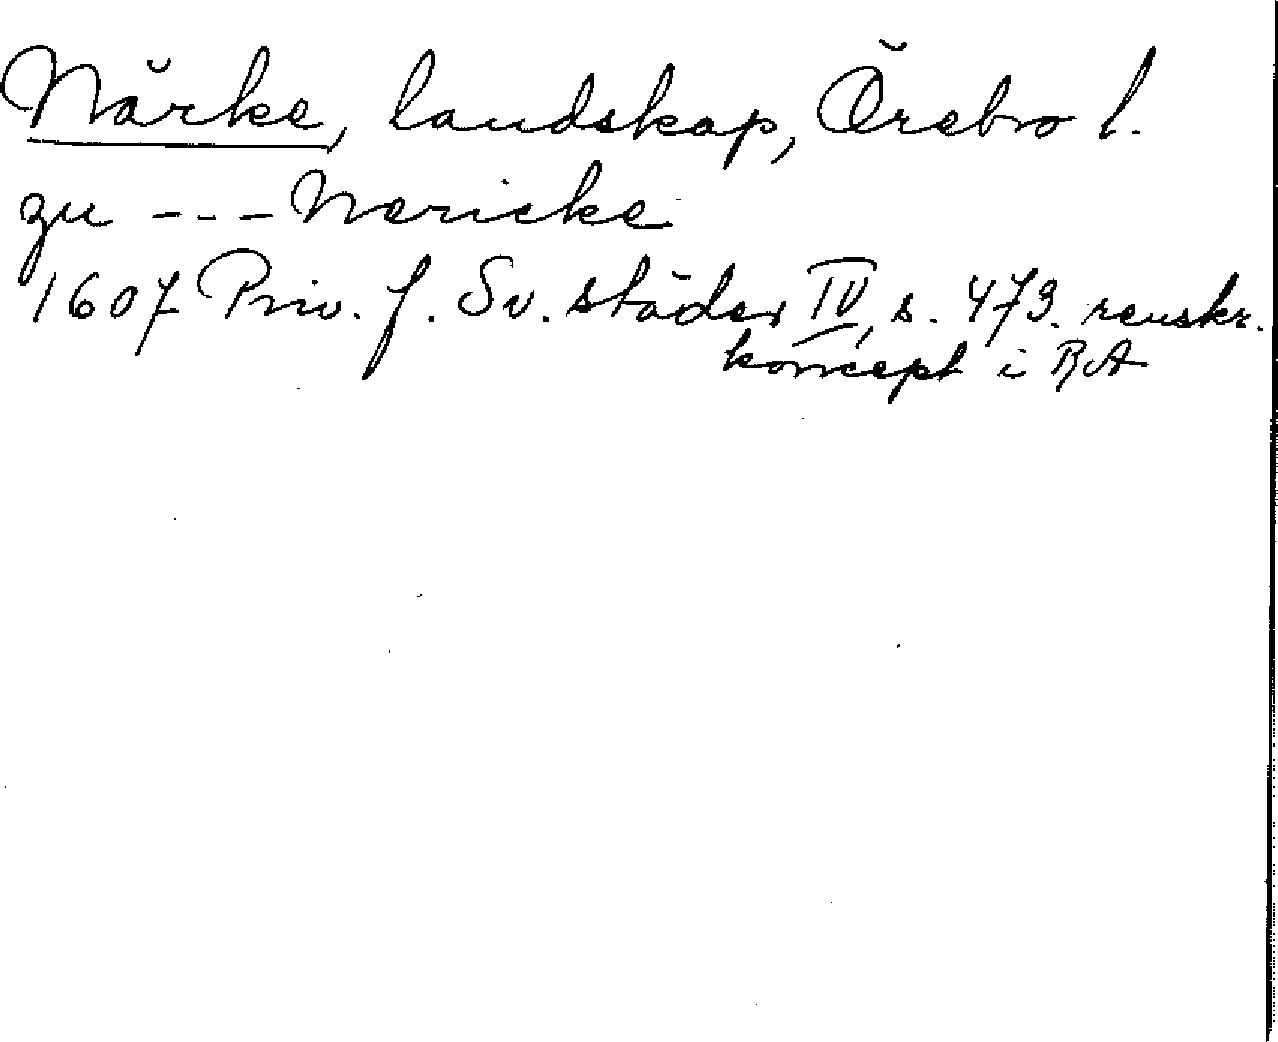 Närke, landskap, Örebro l.
zu --- Nericke
1607 Priv. f. Sv. städer IV, s. 473. renskr.
koncept i RA